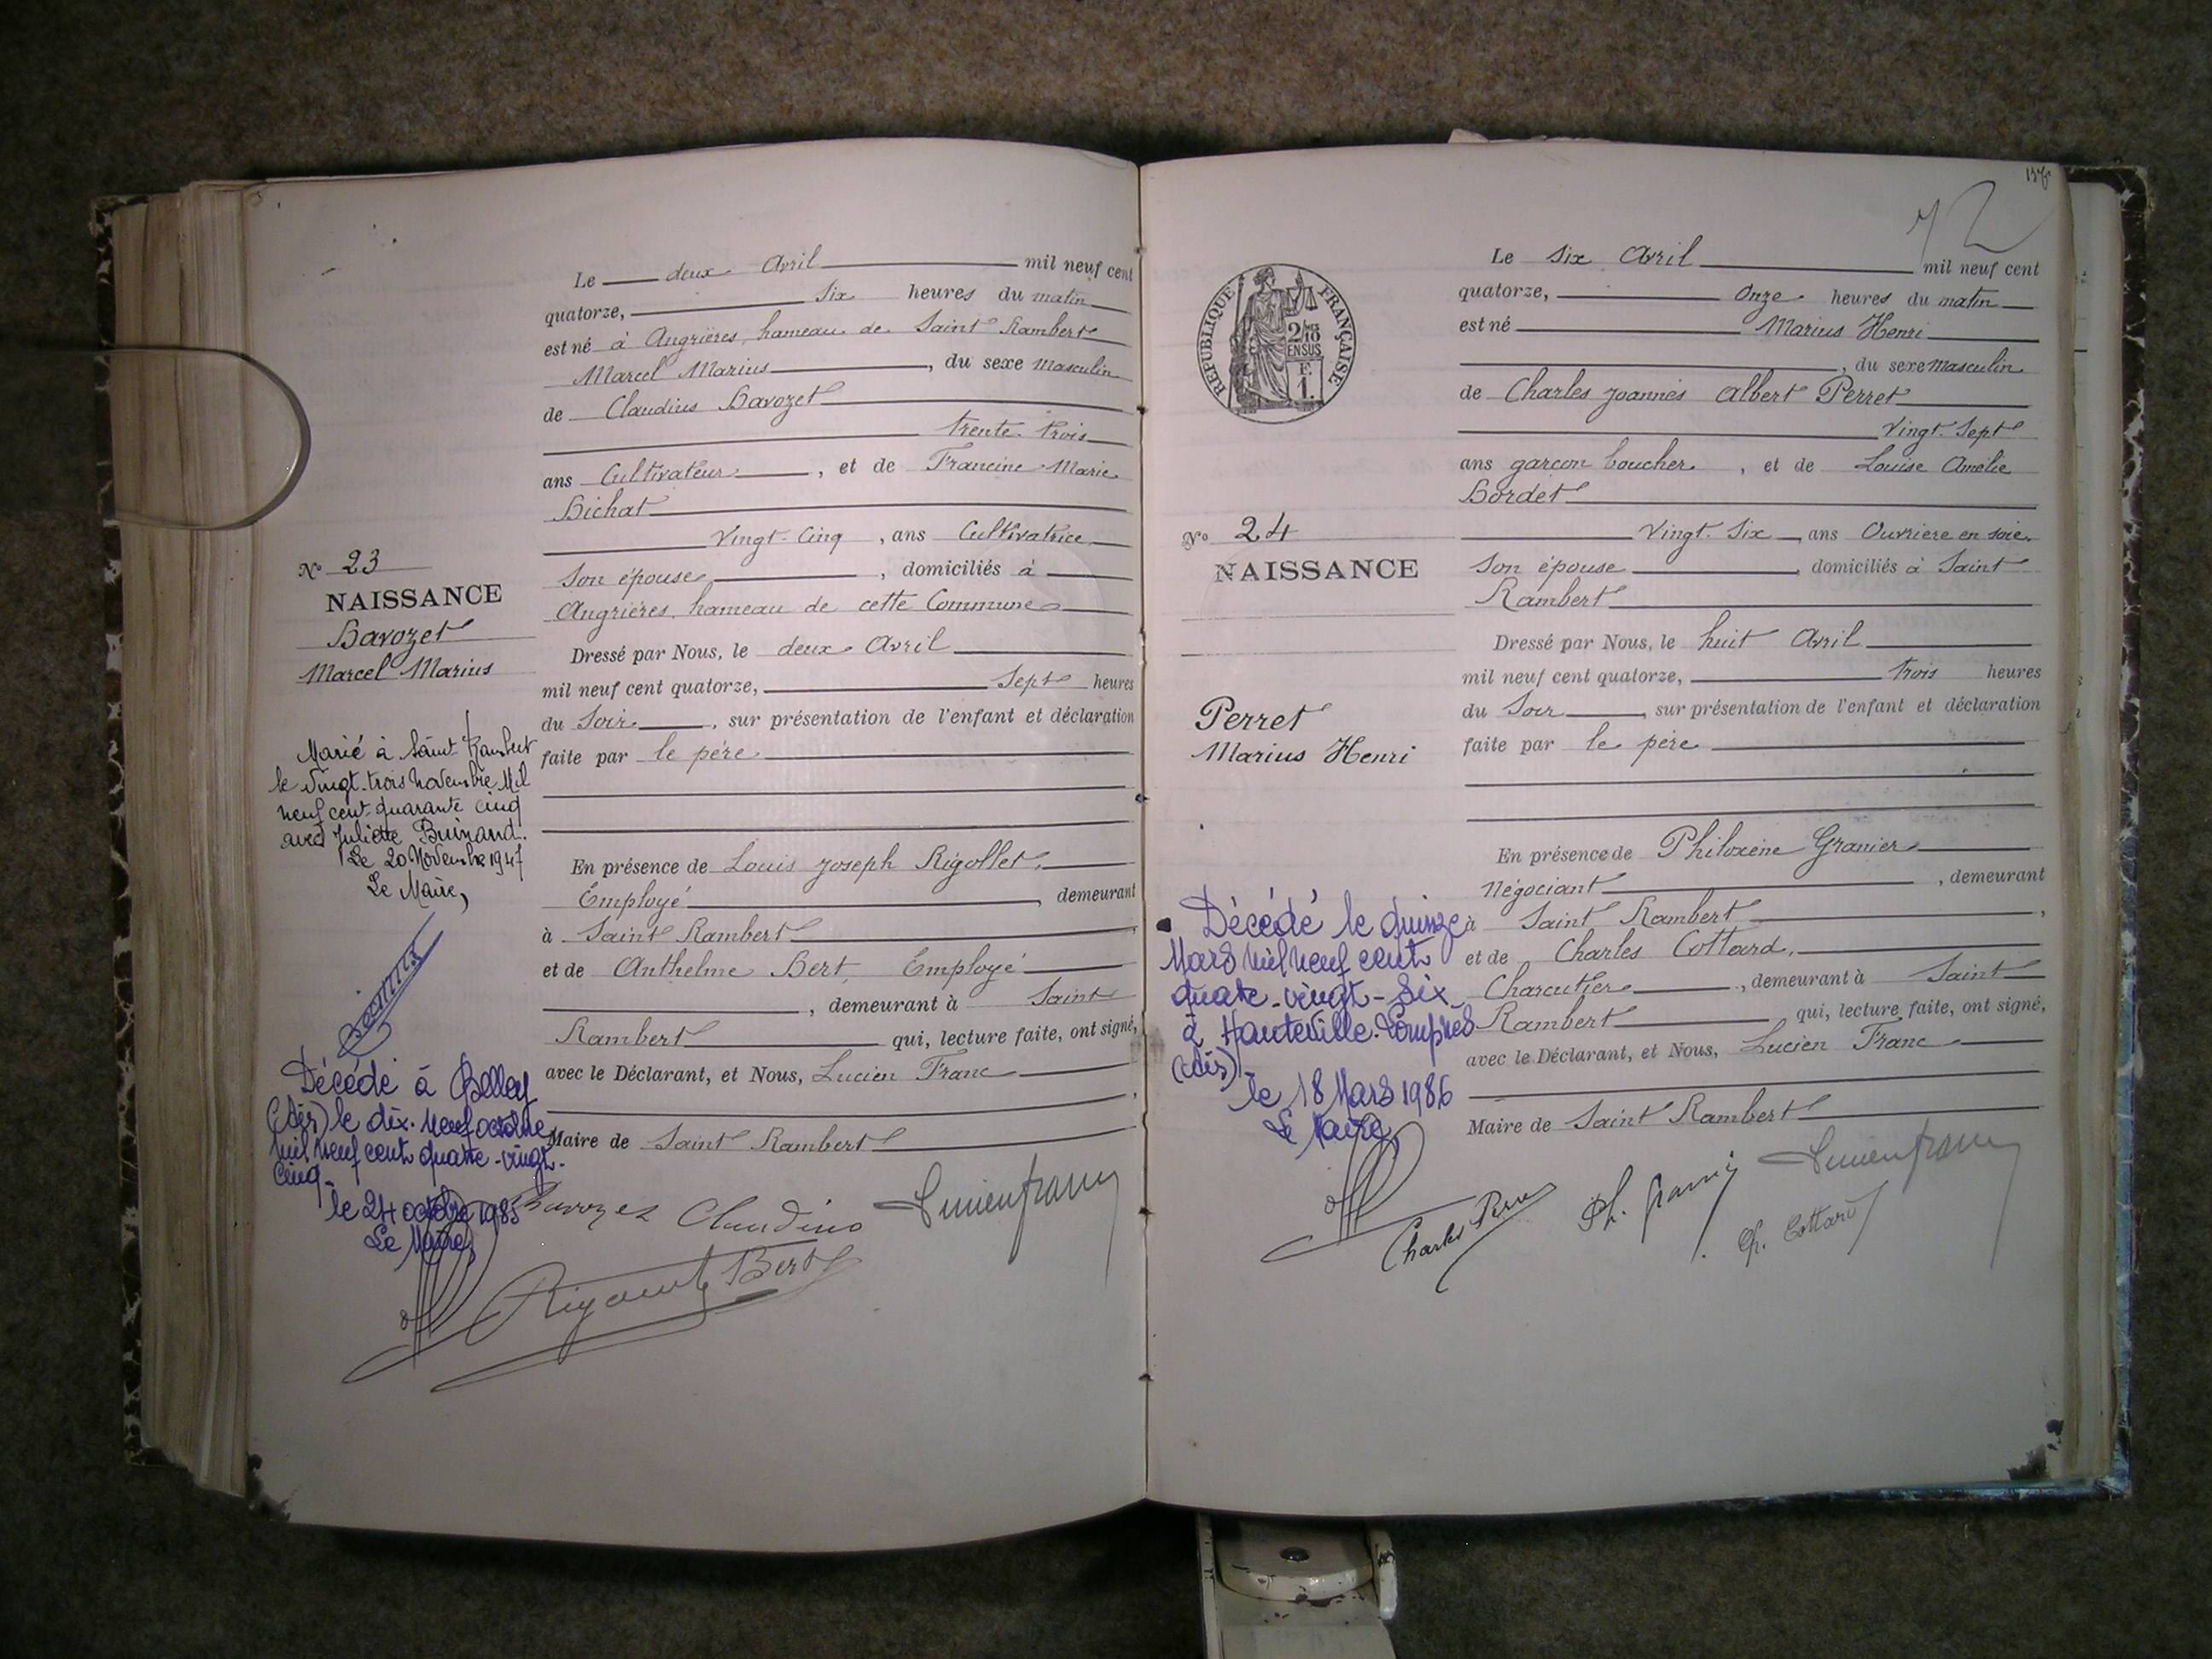 Le deux Avril mil neuf cent
quatorze, six heures du matin
est né à Angrières, hameau de Saint Rambert
Marcel Marius, du sexe masculin
de Claudius Bavozet
trente trois
ans Cultivateur, et de Francine Marie
Bichat
vingt-cinq, ans Cultivatrice
Son épouse, domiciliés à
Angrières, hameau de cette Commune
Dressé par Nous, le deux Avril
mil neuf cent quatorze, Sept heures
du Soir, sur présentation de l'enfant et déclaration
faite par le père
En présence de Louis Joseph Rigollet,
Employé, demeurant
à Saint Rambert
et de Anthelme Bert, Employé
, demeurant à Saint
Rambert qui, lecture faite, ont signé,
avec le Déclarant, et Nous, Lucien Franc
Maire de Saint Rambert
Bavozet Claudius
Lucien franc
Bert
No 23
NAISSANCE
Bavozet
Marcel Marius
Marié à Saint Rambert
le vingt-trois novembre Mil
neuf cent quarante cinq
avec Juliette Buinand.
Le 20 Novembre 1947
Le Maire,
Décédé à Belley
(Ain) le dix-neuf octobre
mil neuf cent quatre-vingt-
cinq
le 24 octobre 1985
Le Maire,
137
72
RÉPUBLIQUE FRANÇAISE
2/10
EN SUS
F.
1.
Le six Avril mil neuf cent
quatorze, Onze heures du matin
est né Marius Henri
, du sexe masculin
de Charles Joannès Albert Perret
Vingt-Sept
ans garçon boucher, et de Louise Amélie
Bordet
Vingt-Six, ans Ouvrière en soie.
Son épouse, domiciliés à Saint
Rambert
Dressé par Nous, le huit Avril
mil neuf cent quatorze, trois heures
du Soir, sur présentation de l'enfant et déclaration
faite par le père
En présence de Philoxène Granier
Négociant, demeurant
à Saint Rambert,
et de Charles Cottard,
Charcutier, demeurant à Saint
Rambert qui, lecture faite, ont signé,
avec le Déclarant, et Nous, Lucien Franc
Maire de Saint Rambert
Lucien franc
Charles Perret
Ph. Granier
Ch. Cottard
No 24
NAISSANCE
Perret
Marius Henri
Décédé le quinze
Mars mil neuf cent
quatre-vingt-six
à Hauteville-Lompnes
(Ain)
le 18 Mars 1986
Le Maire,